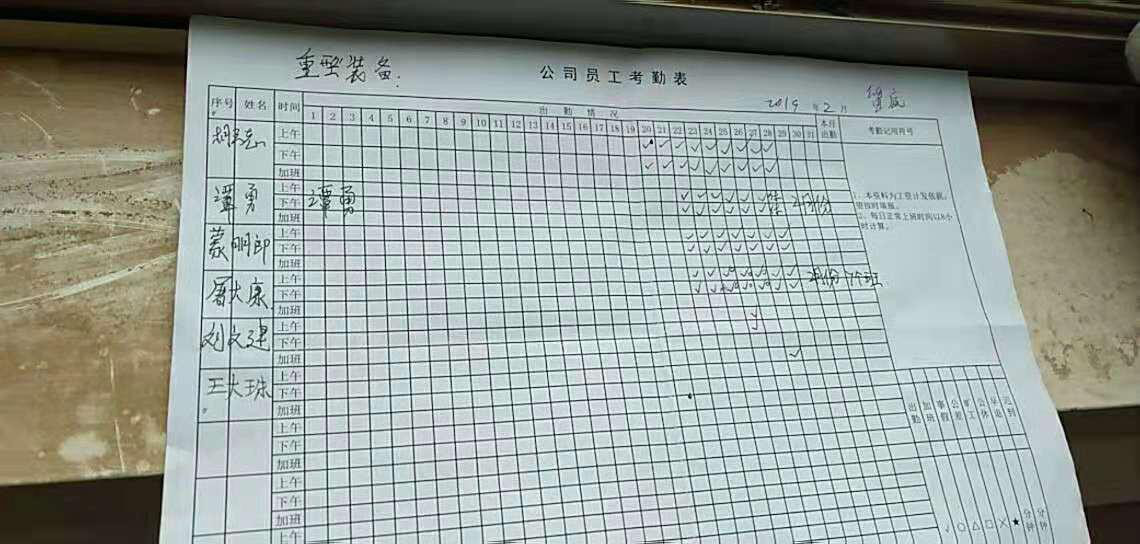 重型装备.
公司员工考勤表
2019 年 2 月
序号 姓名 时间 出勤情况 本月出勤 考勤记用符号
1 2 3 4 5 6 7 8 9 10 11 12 13 14 15 16 17 18 19 20 21 22 23 24 25 26 27 28 29 30 31
上午
下午
加班
谭勇 上午
下午 谭勇 2月份
加班
1、本资料为工资计发依据,
需按时填报。
2、每日正常上班时间以8小
时计算。
蒙明郎 上午
下午
加班
屠大康 上午
下午 2月份 7个班
加班
刘文建 上午
下午
加班
王大珠 上午
下午
加班
上午
下午
加班
上午
下午
加班
上午
出勤 加班 事假 公差 旷工 公休 早退 迟到
✓ ○ △ □ ╳ ★ 分钟 分钟